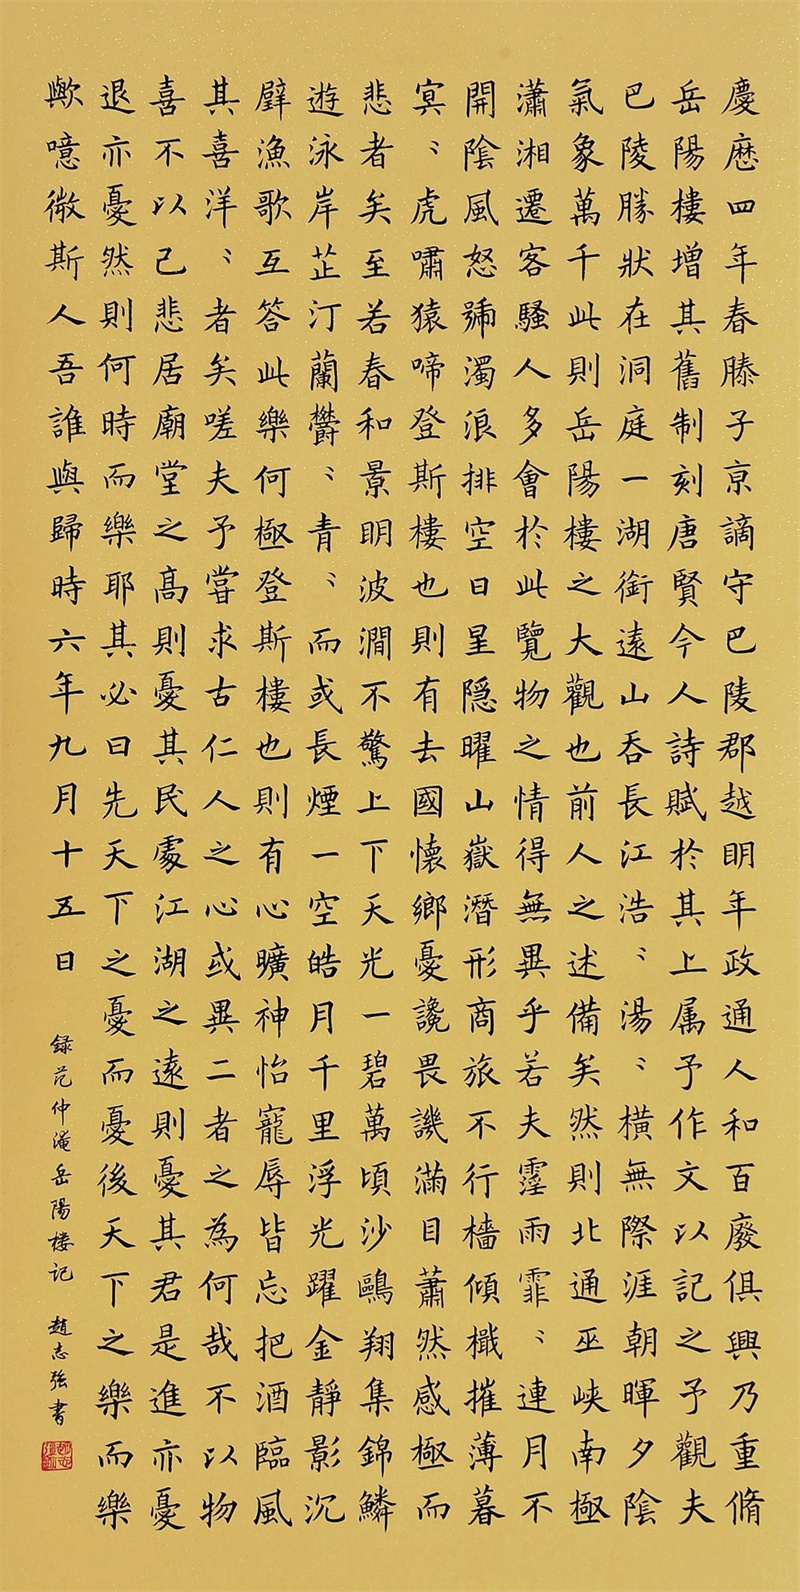 慶厯四年春滕子京謫守巴陵郡越明年政通人和百廢俱興乃重脩
岳陽樓增其舊制刻唐賢今人詩賦於其上属予作文以記之予觀夫
巴陵勝狀在洞庭一湖銜遠山吞長江浩〻湯〻橫無際涯朝暉夕陰
氣象萬千此則岳陽樓之大觀也前人之述備矣然則北通巫峽南極
瀟湘遷客騷人多會於此覽物之情得無異乎若夫霪雨霏〻連月不
開陰風怒號濁浪排空日星隱曜山嶽潛形商旅不行檣傾檝摧薄暮
冥〻虎嘯猿啼登斯樓也則有去國懷鄉憂讒畏譏滿目蕭然感極而
悲者矣至若春和景明波瀾不驚上下天光一碧萬頃沙鷗翔集錦鱗
遊泳岸芷汀蘭鬱〻青〻而或長煙一空皓月千里浮光躍金靜影沉
璧漁歌互答此樂何極登斯樓也則有心曠神怡寵辱皆忘把酒臨風
其喜洋〻者矣嗟夫予嘗求古仁人之心或異二者之為何哉不以物
喜不以己悲居廟堂之高則憂其民處江湖之遠則憂其君是進亦憂
退亦憂然則何時而樂耶其必曰先天下之憂而憂後天下之樂而樂
歟噫微斯人吾誰與歸時六年九月十五日 録范仲淹岳陽楼记 趙志強書